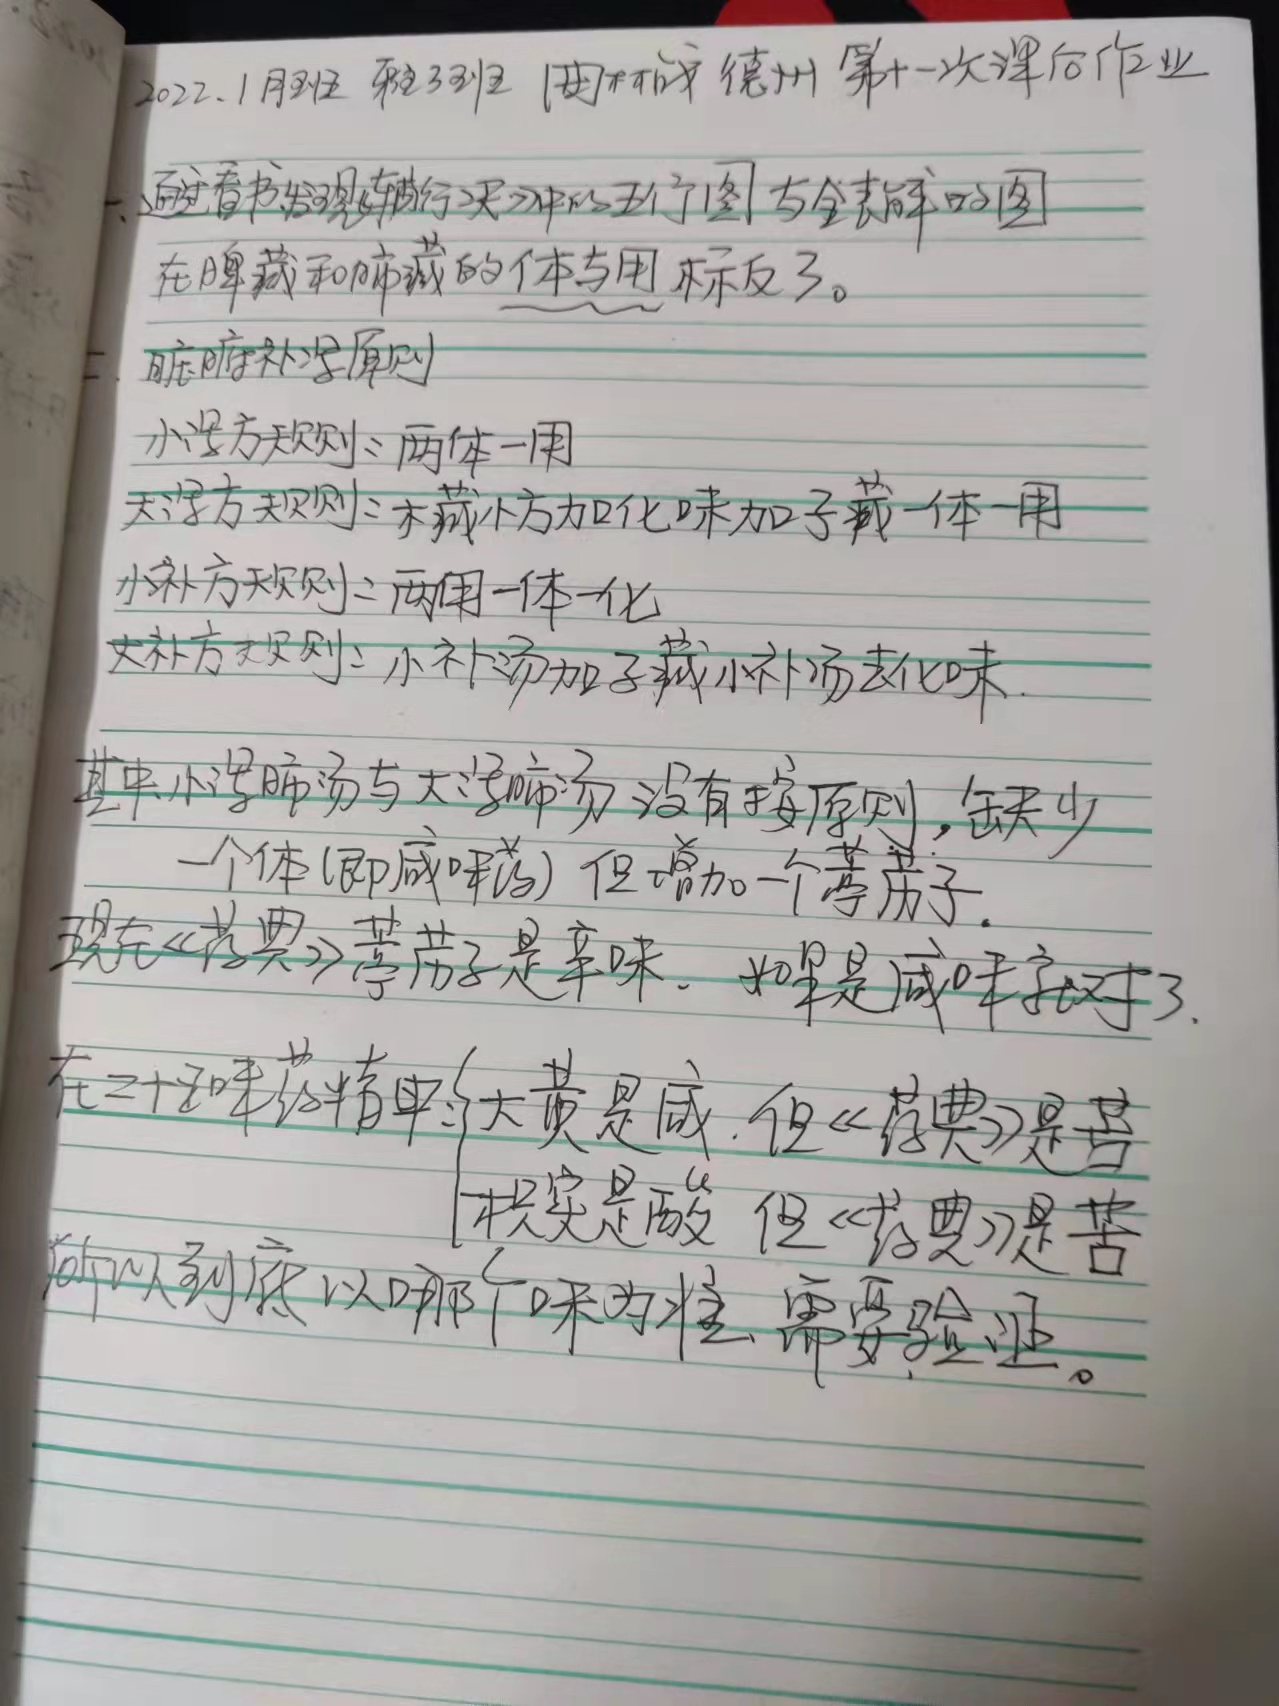 2022.1月班 雅3班 周林成 德州 第十一次课后作业
一、通过看书发现《辅行诀》中的五行图与金表解的图
在脾藏和肺藏的体与用标反了。
二、脏腑补泻原则
小泻方规则:两体一用
大泻方规则:本藏小方加化味加子藏一体一用
小补方规则:两用一体一化
大补方规则:小补汤加子藏小补汤去化味.
其中小泻肺汤与大泻肺汤没有按原则,缺少
一个体(即咸味药)但增加一个葶苈子.
现在《药典》葶苈子是辛味. 如果是咸味就对了.
在二十五味药精中:{大黄是咸.但《药典》是苦
枳实是酸 但《药典》是苦
所以到底以哪个味为准、需要验证。